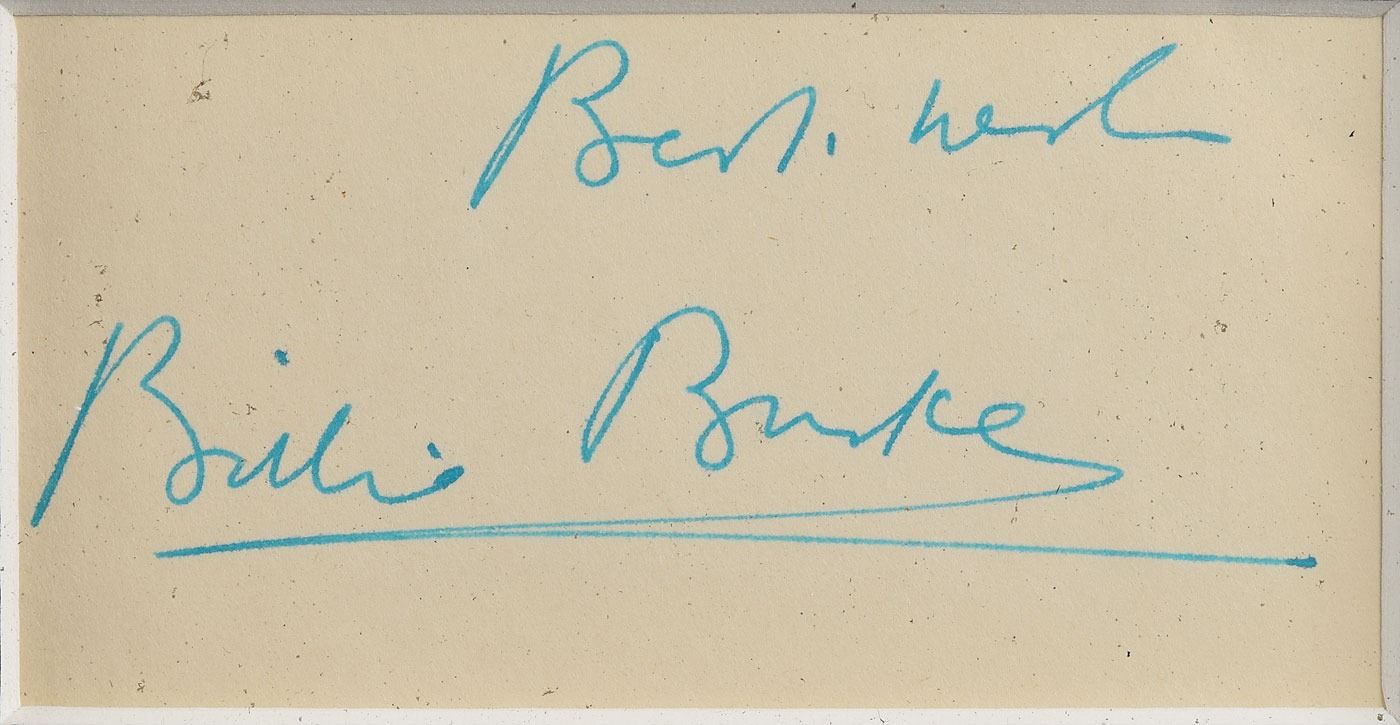 Best wishes
Billie Burke